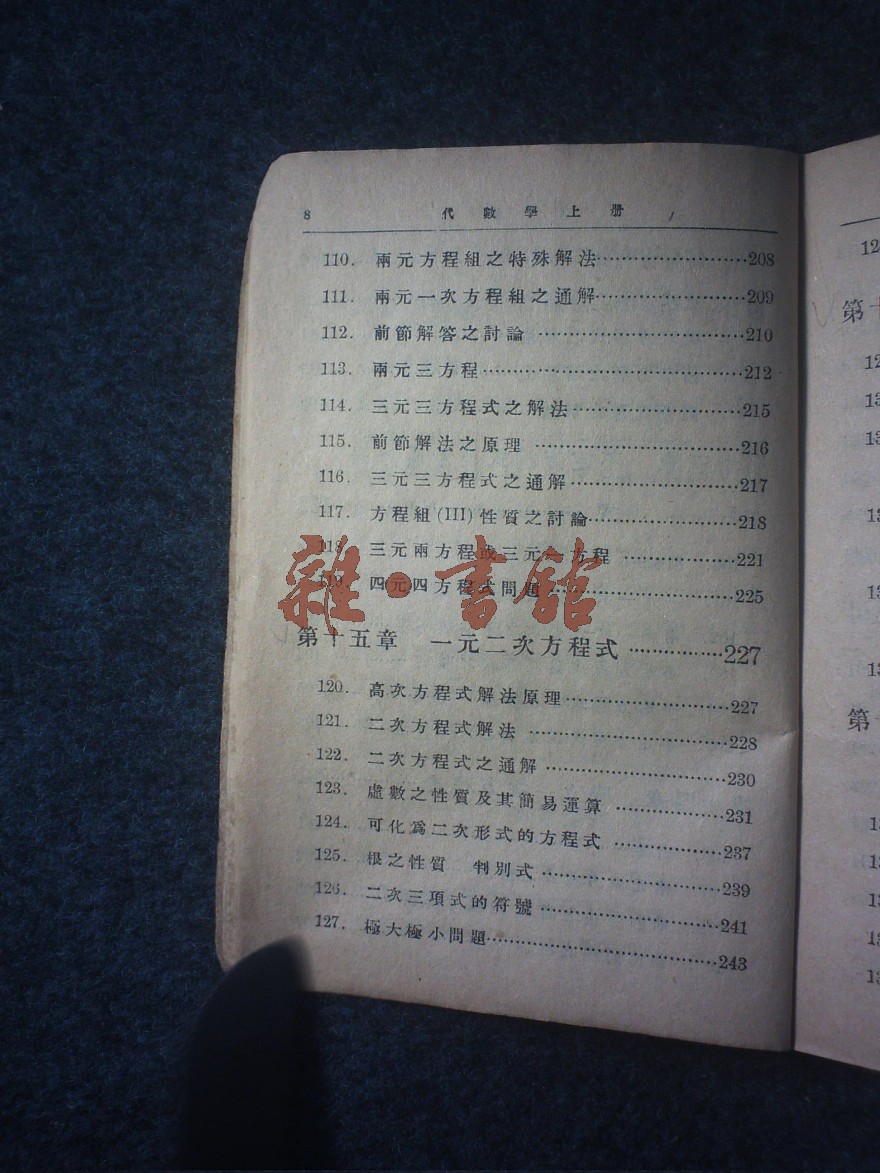 8 代數學上册
110. 兩元方程組之特殊解法……208
111. 兩元一次方程組之通解……209
112. 前節解答之討論……210
113. 兩元三方程……212
114. 三元三方程式之解法……215
115. 前節解法之原理……216
116. 三元三方程式之通解……217
117. 方程組(III)性質之討論……218
118. 三元兩方程或三元 方程……221
119. 四元四方程式問題……225
雜·書館
第十五章 一元二次方程式……227
120. 高次方程式解法原理……227
121. 二次方程式解法……228
122. 二次方程式之通解……230
123. 虛數之性質及其簡易運算……231
124. 可化爲二次形式的方程式……237
125. 根之性質 判別式……239
126. 二次三項式的符號……241
127. 極大極小問題……243
第十
第十